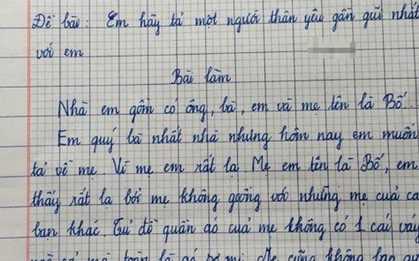 Đề bài : Em hãy tả một người thân yêu gần gũi nhất
với em
Bài làm
Nhà em gồm có ông, bà, em và mẹ tên là Bố.
Em quý bà nhất nhà nhưng hôm nay em muốn
tả về mẹ Vì mẹ em rất lạ Mẹ em tên là Bố, em
thấy rất lạ bởi mẹ không giống với những mẹ của cá
bạn khác Tủ đồ quần áo của mẹ không có 1 cái váy
mẹ cũng không